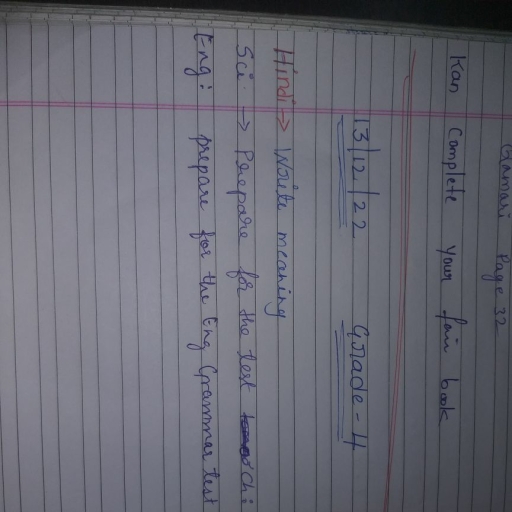 Page 32
Kan Complete your fair book
13/12/22 Grade - 4
Hindi → Write meaning
Sci → Prepare for the test ch:
Eng: prepare for the Eng Grammar test